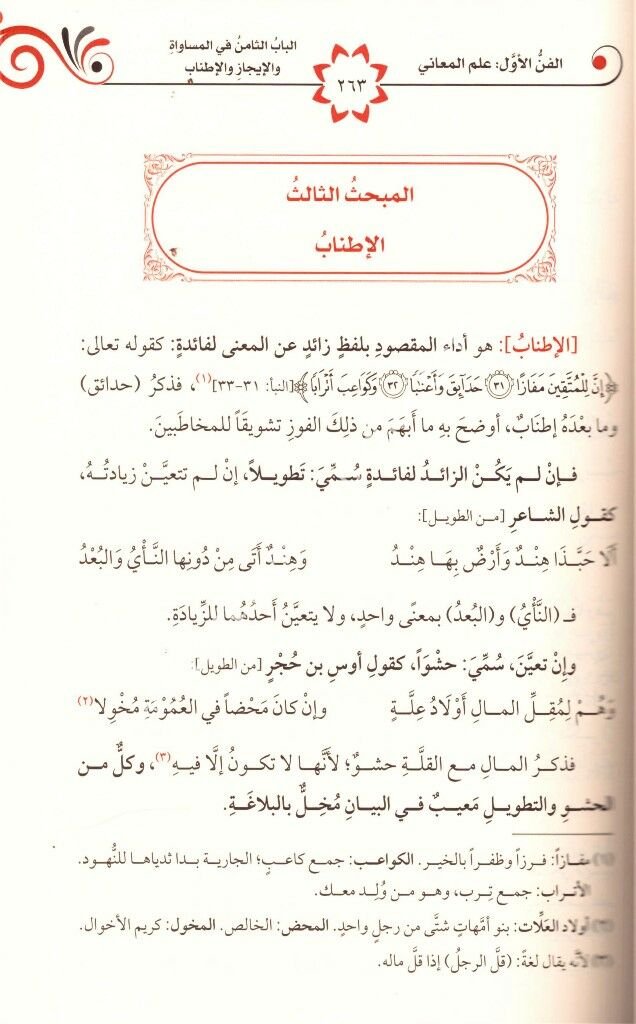 الفنُّ الأوَّل: علم المعاني
٢٦٣
البابُ الثامنُ في المساواةِ
والإيجازِ والإطنابِ
المبحثُ الثالثُ
الإطنابُ
[الإطنابُ]: هو أداء المقصودِ بلفظٍ زائدٍ عن المعنى لفائدةٍ: كقوله تعالى:
﴿إِنَّ لِلْمُتَّقِينَ مَفَازًا ٣١ حَدَآئِقَ وَأَعْنَٰبًا ٣٢ وَكَوَاعِبَ أَتْرَابًا﴾ [النبأ: ٣١-٣٣](١)، فذكرُ (حدائق)
وما بعْدَهُ إطنَابٌ، أوضحَ بهِ ما أبهَمَ من ذلِكَ الفوزِ تشويقَاً للمخاطَبينَ.
فـإنْ لـم يَكُـنْ الزائـدُ لفائـدةٍ سُمِّـيَ: تَطويـلاً، إنْ لـم تتعيَّـنْ زيادتُـهُ،
كقولِ الشاعرِ [من الطويل]:
أَلَا حَبَّـذَا هِنْـدٌ وَأَرْضٌ بِهَـا هِنْـدُ وَهِنْـدٌ أَتَى مِنْ دُونِها النَّـأْيُ وَالبُعْدُ
فـ (النَّأْيُ) و(البُعدُ) بمعنى واحدٍ، ولا يتعيَّنُ أحدُهُما للزِّيادَةِ.
وإنْ تعيَّنَ، سُمِّيَ: حشْوَاً، كقولِ أوسِ بن حُجْرٍ [من الطويل]:
وَهُـمْ لِمُقِـلِّ المـالِ أَوْلَادُ عِلَّـةٍ وإنْ كانَ مَحْضاً في العُمُوْمَةِ مُخْوِلا(٢)
فذكـرُ المـالِ مـع القلَّـةِ حشـوٌ؛ لأنَّهـا لا تكـونُ إلَّا فيـهِ(٣)، وكلٌّ مـن
الحشـوِ والتطويـلِ مَعيـبٌ فـي البيـانِ مُخِـلٌّ بالبلاغَـةِ.
(١) مفازاً: فـرزاً وظفـراً بالخيـر. الكواعب: جمـع كاعـبٍ؛ الجاريـة بـدا ثدياهـا للنُّهـود.
الأتراب: جمع تِرب، وهـو مـن وُلِد معـك.
(٢) أولاد العَلَّات: بنو أمَّهاتٍ شتَّى من رجلٍ واحدٍ. المحض: الخالص. المخول: كريم الأخوال.
(٣) لأنَّه يقال لغةً: (قلَّ الرجلُ) إذا قلَّ ماله.